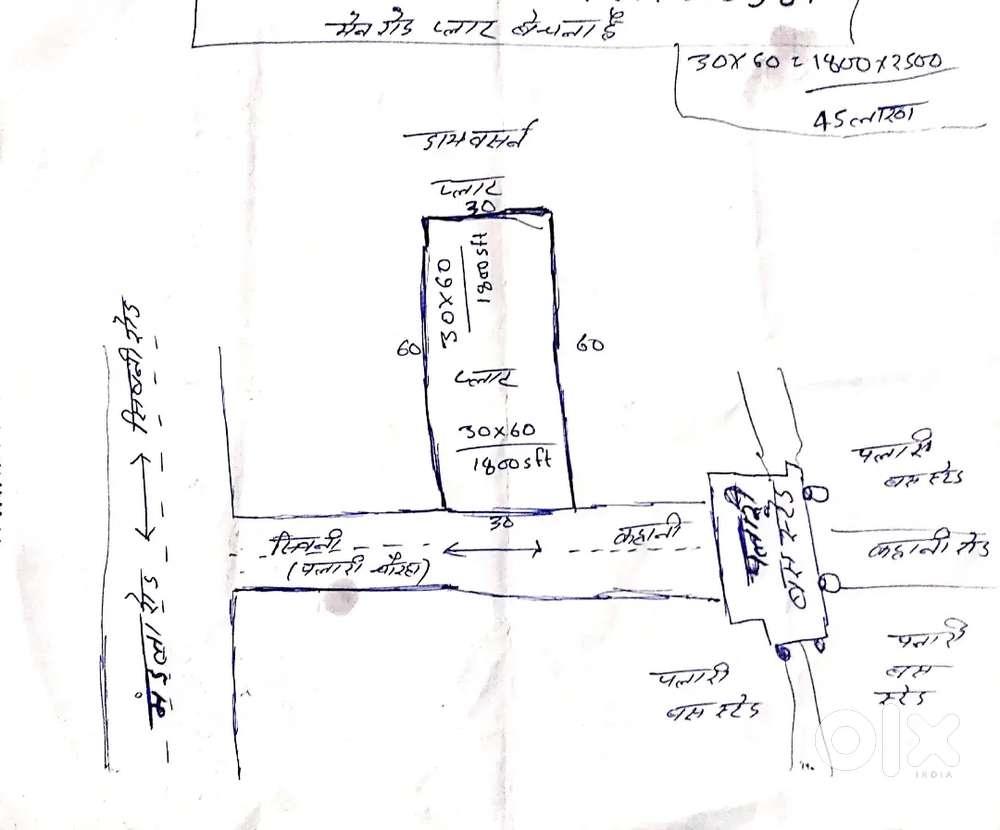 मेन रोड प्लाट बेचना है
30×60 = 1800×2500
45 लाख
डायवसर्न
प्लाट
30
30×60
1800 sft
60
60
प्लाट
30×60
1800 sft
30
सिवनी रोड
मण्डला रोड
सिवनी
(पलारी चौरहा)
कहानी
पलारी
बस स्टेड
कहानी रोड
पलारी
बस स्टेड
पलारी
बस
स्टेड
olx
INDIA